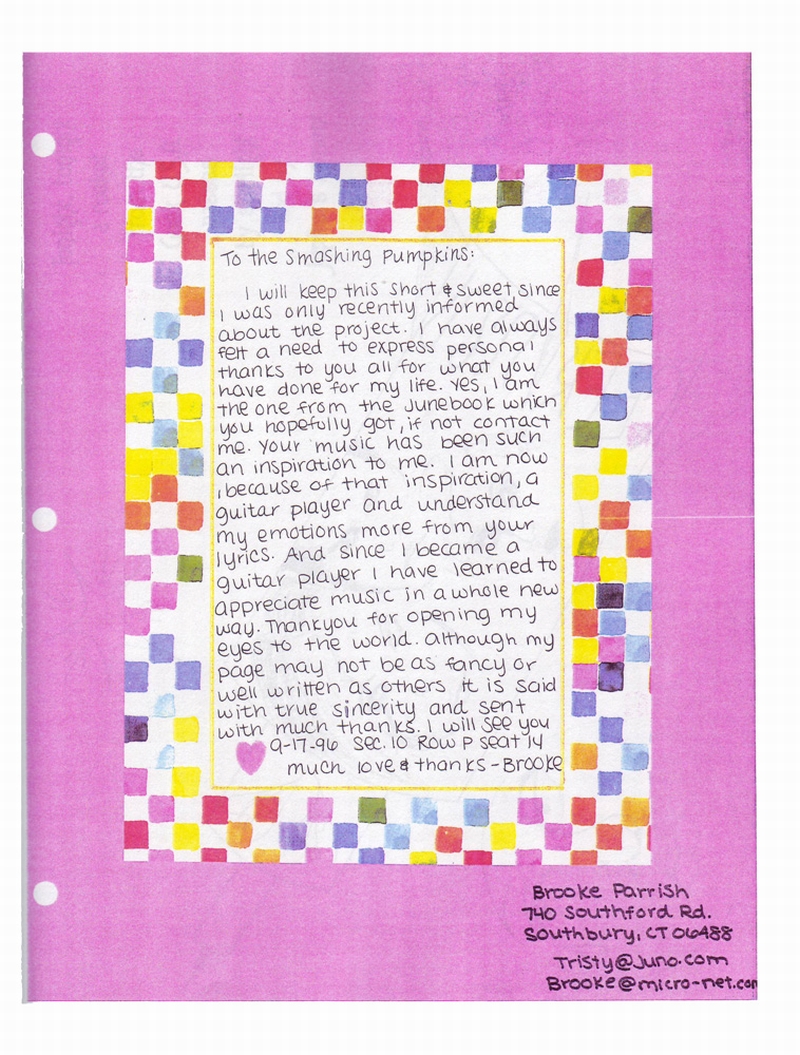 To the Smashing Pumpkins:
I will keep this short & sweet since
I was only recently informed
about the project. I have always
felt a need to express personal
thanks to you all for what you
have done for my life. Yes, I am
the one from the Junebook which
you hopefully got, if not contact
me. Your music has been such
an inspiration to me. I am now
, because of that inspiration, a
guitar player and understand
my emotions more from your
lyrics. And since I became a
guitar player I have learned to
appreciate music in a whole new
way. Thankyou for opening my
eyes to the world. Although my
page may not be as fancy or
well written as others it is said
with true sincerity and sent
with much thanks. I will see you
9-17-96 Sec. 10 Row P Seat 14
much love & thanks - Brooke
Brooke Parrish
740 Southford Rd.
Southbury, CT 06488
Tristy@Juno.com
Brooke@micro-net.com